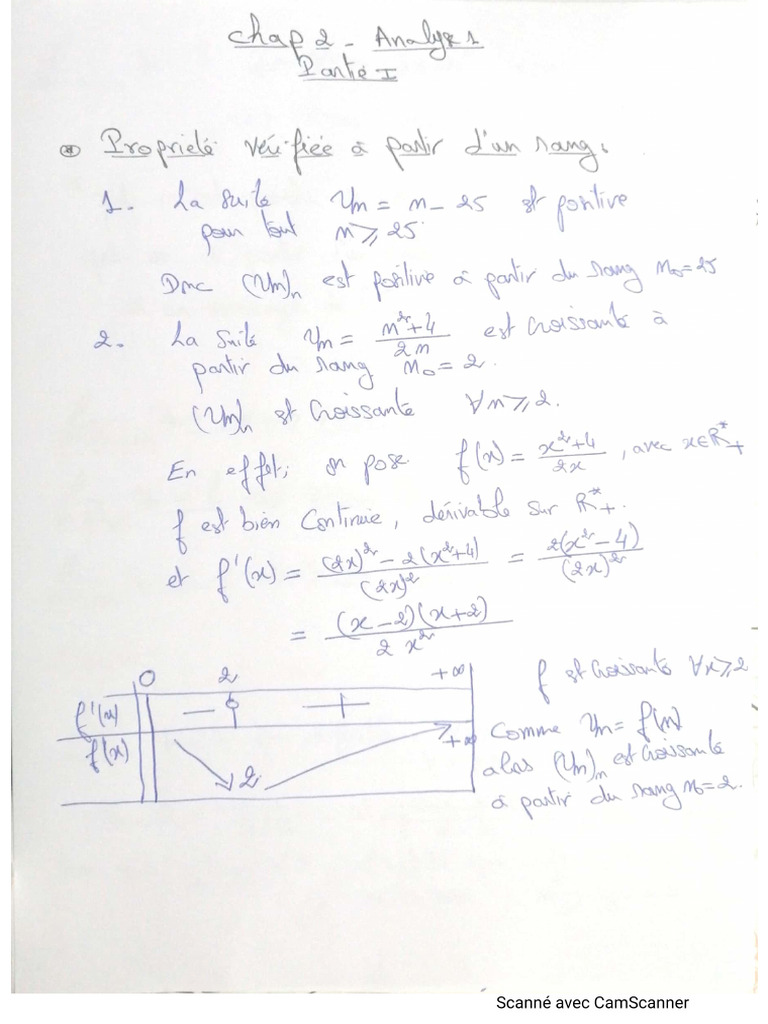 Chap 2 - Analyse 1
Partie I
Propriété vérifiée à partir d'un rang :
1. La suite Un = n - 25 est positive
pour tout n ⩾ 25
Donc (Un)n est positive à partir du rang n0 = 25
2. La suite Un = (n² + 4)/(2n) est croissante à
partir du rang n0 = 2.
(Un)n est croissante ∀n ⩾ 2.
En effet, on pose f(x) = (x² + 4)/(2x), avec x ∈ R*+
f est bien continue, dérivable sur R*+.
et f'(x) = ((2x)² - 2(x² + 4))/(2x)² = 2(x² - 4)/(2x)²
= (x - 2)(x + 2)/(2x²)
0 2 +∞
f'(x) - 0 +
f(x) 2 +∞
f est croissante ∀x ⩾ 2
Comme Un = f(n)
alors (Un)n est croissante
à partir du rang n0 = 2.
Scanné avec CamScanner